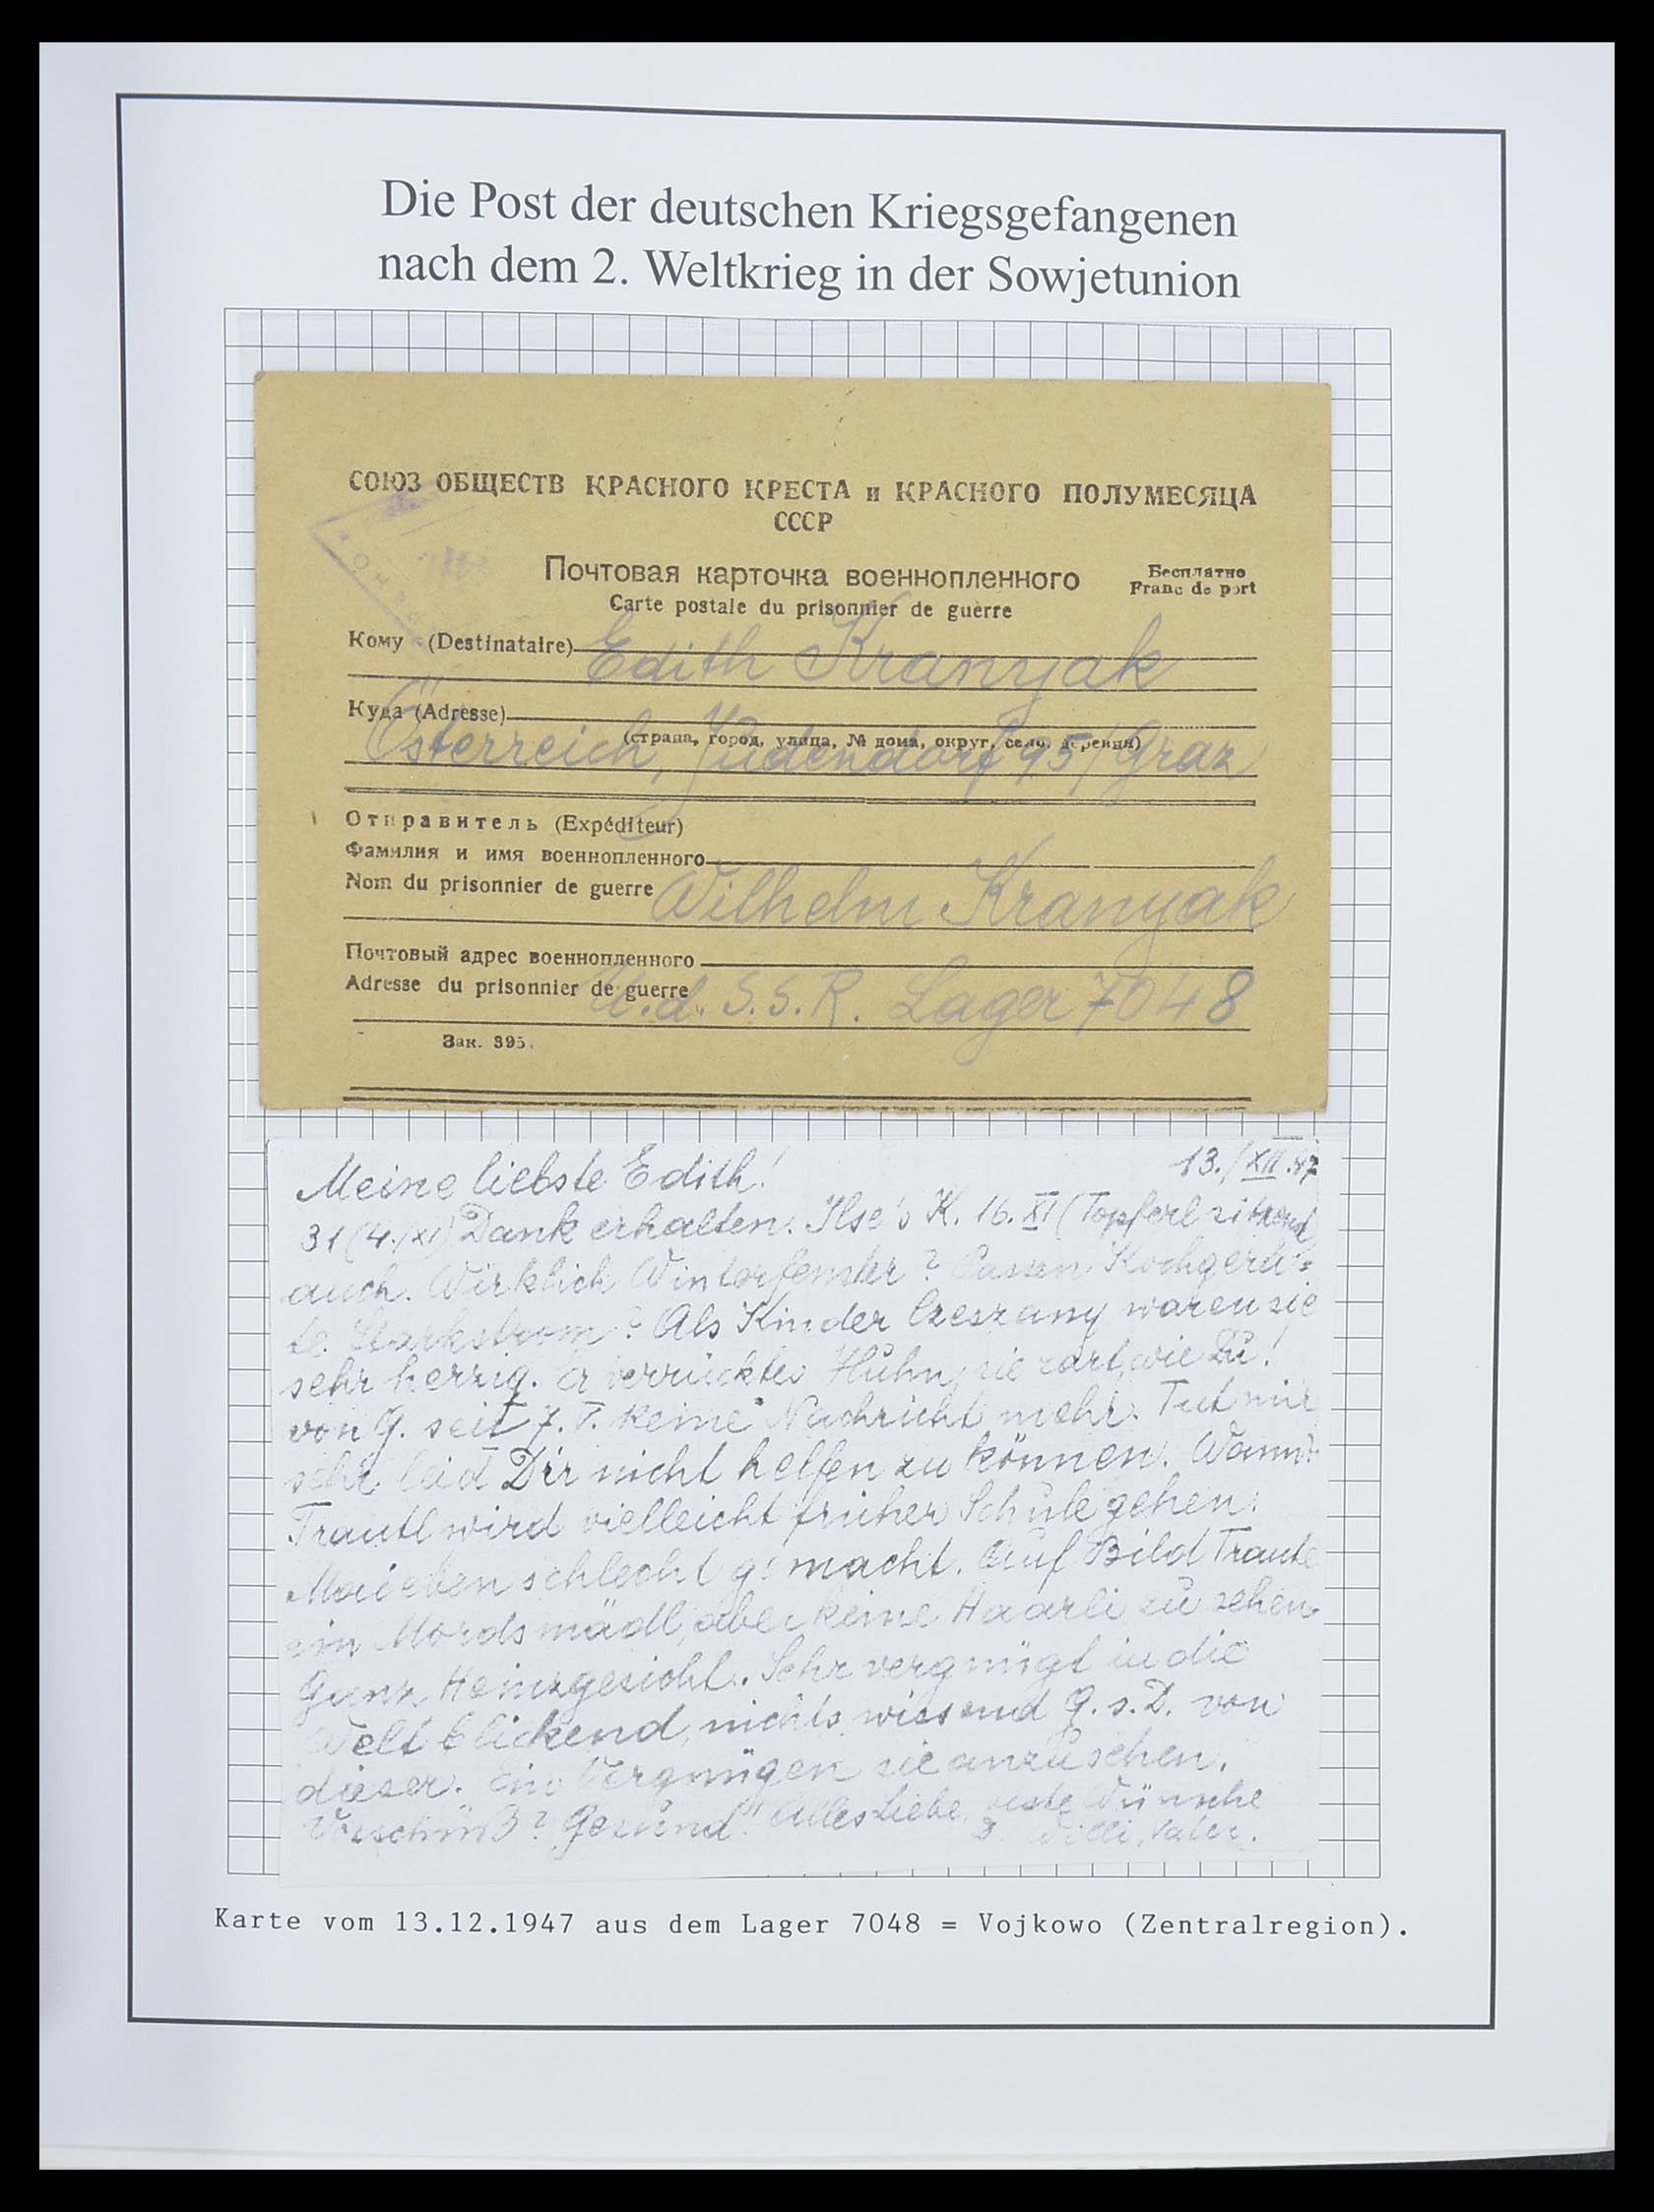 Die Post der deutschen Kriegsgefangenen
nach dem 2. Weltkrieg in der Sowjetunion
СОЮЗ ОБЩЕСТВ КРАСНОГО КРЕСТА и КРАСНОГО ПОЛУМЕСЯЦА
СССР
Почтовая карточка военнопленного
Бесплатно
Carte postale du prisonnier de guerre
Franc de port
Кому (Destinataire) Edith Kranyak
Куда (Adresse)
(страна, город, улица, № дома, округ, село, деревня)
Österreich, Judendorf 95/Graz
Отправитель (Expéditeur)
Фамилия и имя военнопленного
Nom du prisonnier de guerre Wilhelm Kranyak
Почтовый адрес военнопленного
Adresse du prisonnier de guerre U.d.S.S.R. Lager 7048
Зак. 395.
Meine liebste Edith! 13./XII.47
31 (4./XI) Dank erhalten. Ilse's K. 16. XI (Topferl sitzend)
auch. Wirklich Winterfenster? Passen Kochgerä-
te Starkstrom? Als Kinder Czeszany waren sie
sehr herzig. Er verrücktes Huhn, sie zart, wie Du!
von G. seit 7. V. keine Nachricht mehr. Tut mir
sehr leid Dir nicht helfen zu können. Wann?
Trautl wird vielleicht früher Schule gehen.
schlecht gemacht. Auf Bild Traute
ein Mordsmädl, aber keine Haarli zu sehen.
Ganz Heinzgesicht. Sehr vergnügt in die
Welt blickend, nichts wissend G.s.D. von
dieser. Ein Vergnügen sie anzusehen.
Vorschuß? Gesund! Alles Liebe, beste Wünsche
Willi, Vater.
Karte vom 13.12.1947 aus dem Lager 7048 = Vojkowo (Zentralregion).